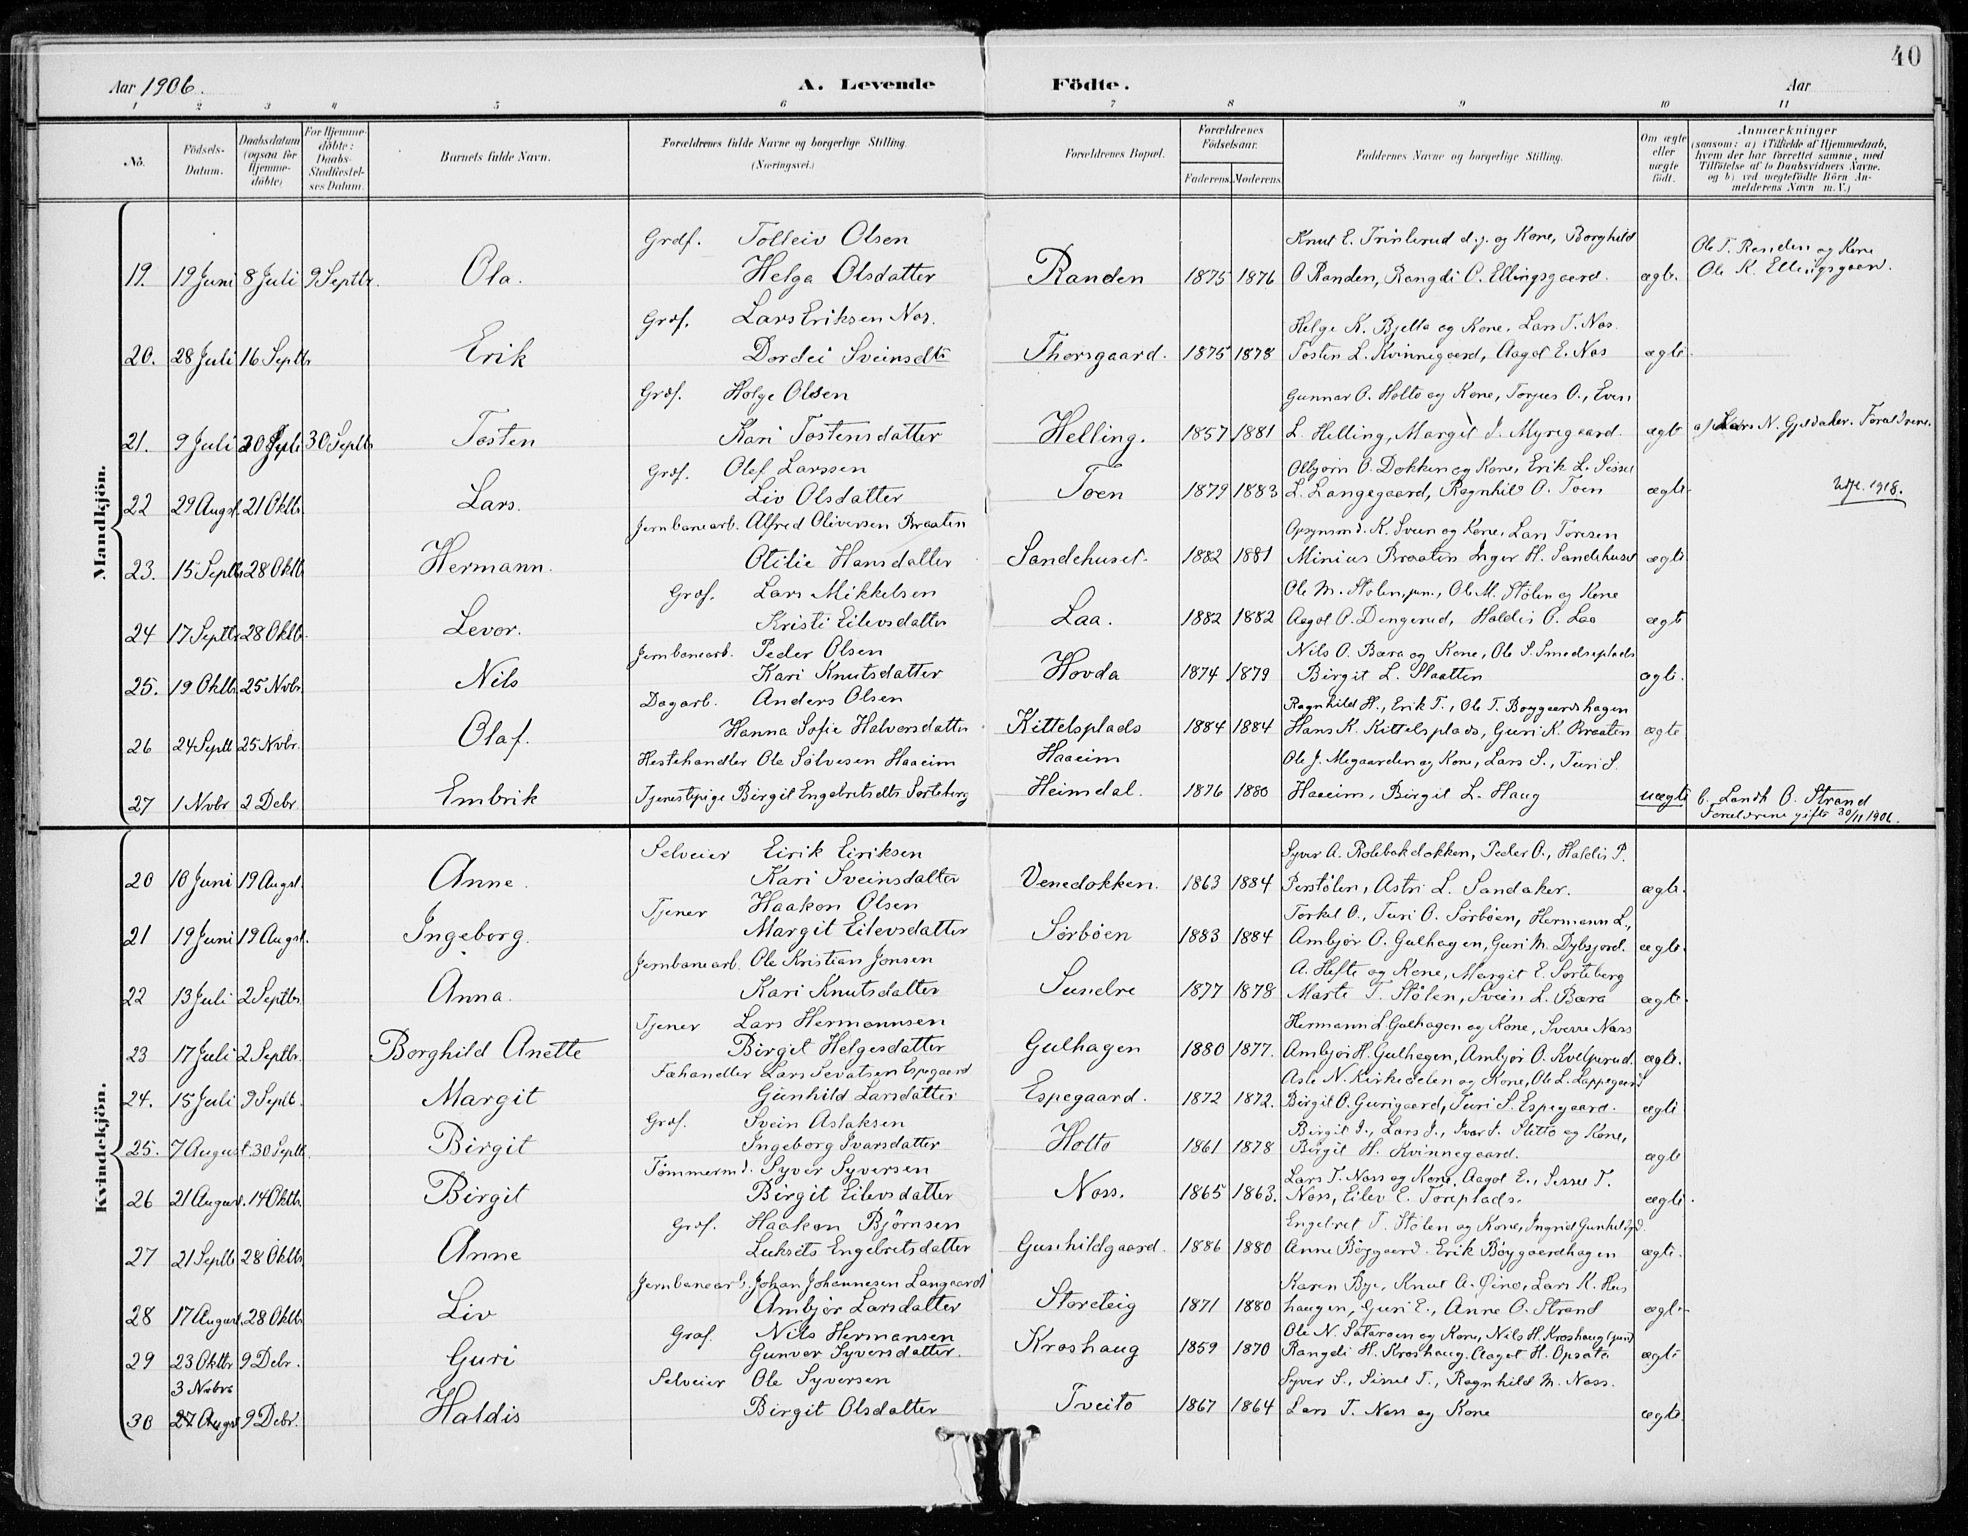 40
Aar 1906. A. Levende Födte. Aar
1 2 3 4 5 6 7 8 9 10 11
No. Födsels-Datum. Daabsdatum (ogsaa for Hjemme-döbte) For Hjemme-döbte: Daabs-Stadfæstel-ses Datum. Barnets fulde Navn. Forældrenes fulde Navne og borgerlige Stilling. (Næringsvei.) Forældrenes Bopæl. Forældrenes Födselsaar. Faderens. Moderens. Faddernes Navne og borgerlige Stilling. Om ægte eller uægte födt. Anmærkninger (saasom: a) i Tilfælde af Hjemmedaab, hvem der har forrettet samme, med Tilföielse af to Daabsvidners Navne, og b) ved uægtefödte Börn An-melderens Navn m. V.)
Mandkjön.
Grdf. Tolleiv Olsen Knut E. Trinlerud d.y. og Kone, Borghild Ole T. Randen og Kone
19. 19 Juni 8 Juli 9 Septbr. Ola. Helga Olsdatter Randen 1875 1876 O Randen, Rangdi O. Ellingsgaard. ægte. Ole K. Ellingsgaard.
Grdf. Lars Eriksen Nos. Helge K. Bjella og Kone, Lars T. Nos.
20. 28 Juli 16 Septbr Erik Dordei Sveinsdtr Thorsgaard. 1875 1878 Tosten L. Kvinnegaard, Aagot E. Nos ægte.
Grdf. Helge Olsen Gunnar O. Holto og Kone, Torjus O., Even
21. 9 Juli 30 Septbr Tosten Kari Tostensdatter Helling. 1857 1881 L. Helling, Margit J. Myregaard. ægte a) Lars N. Gjeldaker. Forældrene.
Grdf. Olef Larssen Olbjørn O. Dokken og Kone, Erik L. Sissel
22 29 Augst. 21 Oktb. Lars. Liv Olsdatter Toen 1879 1883 L. Langegaard, Ragnhild O. Toen ægte. 1918.
Jernbanearb. Alfred Oliversen Braaten Opsynsmd. K. Sveen og Kone, Lars Toresen
23. 15 Septbr 28 Oktb Hermann. Otilie Hansdatter Sandehuset. 1882 1881 Minius Braaten Inger H. Sandehuset ægte
Grdf. Lars Mikkelsen Ole M. Stølen, jun., Ole M. Stølen og Kone
24 17 Septbr 28 Oktb. Levor. Kristi Eilevsdatter Laa. 1882 1882 Aagot O. Dengerud, Haldis O. Laa ægte
Jernbanearb. Peder Olsen Nils O. Bæra og Kone, Ole S. Smedseplads
25. 19 Oktbr. 25 Novbr. Nils Kari Knutsdatter Hovda 1874 1879 Birgit L. Slaatten ægte.
Dagarb. Anders Olsen Ragnhild H., Erik T., Ole T. Bøygaardshagen
26 24 Septb 25 Novbr. Olaf. Hanna Sofie Halvorsdatter Kittelsplads 1884 1884 Hans K. Kittelsplads, Guri K. Braaten ægte
Hestehandler Ole Sølvesen Haaeim Haaeim Ole J. Megaarden og Kone, Lars S., Turi S.
27 1 Novbr 2 Debr. Embrik Tjenestepige Birgit Engebretsdtr Sorteberg Heimdal. 1876 1880 Haaeim, Birgit L. Haug uægte b. Landh. O. Strand
Forældrene gifte 30/11 1906.
Kvindekjön.
Selveier Eirik Eiriksen Syver A. Rolebakdokken, Peder O., Haldis P.
20 10 Juni 19 Augst. Anne. Kari Sveinsdatter Venedokken. 1863 1884 Perstølen, Astri L. Sandaker. ægte.
Tjener Haakon Olsen Torkel O., Turi O. Sørbøen, Hermann L.,
21 19 Juni 19 Augst. Ingeborg. Margit Eilevsdatter Sørbøen 1883 1884 Ambjør O. Gulhagen, Guri M. Dybsjord. ægte.
Jernbanearb. Ole Kristian Jonsen A. Hefte og Kone, Margit E. Sorteberg
22 13 Juli 2 Septbr. Anna. Kari Knutsdatter Sundre 1877 1878 Marte T. Stølen, Svein L. Bæra ægte.
Tjener Lars Hermannsen Hermann L. Gulhagen og Kone, Sverre Nass
23 17 Juli 2 Septbr. Borghild Anette Birgit Helgesdatter Gulhagen 1880 1877. Ambjør H. Gulhagen, Ambjør O. Kvelprud. ægte.
Fæhandler Lars Sevatsen Espegaard Asle N. Kirkedelen og Kone, Ole L. Lappegaard
24. 15 Juli 9 Septb. Margit Gunhild Larsdatter Espegaard. 1872 1872. Birgit O. Gurigaard, Turi S. Espegaard. ægte
Grdf. Svein Aslaksen Birgit J., Lars J., Ivar J. Sletto og Kone,
25. 7 August 30 Septb. Birgit Ingeborg Ivarsdatter Holto 1861 1878 Birgit H. Kvinnegaard. ægte
Tømmermd. Syver Syversen Lars T. Nass og Kone, Aagot E., Sissel T.
26 21 August. 14 Oktbr. Birgit Birgit Eilevsdatter Nass. 1865 1863. Nass, Eilev E. Toreplads. ægte.
Grdf. Haakon Bjørnsen Engebret T. Stølen og Kone, Ingrid Gunhildgrd.
27 21 Septb 28 Oktbr Anne Luksets Engebretsdatter Gunhildgaard. 1886 1880 Anne Bøygaard. Erik Bøygaardhagen ægte.
Jernbanearb. Johan Johannesen Langaard Karen Bye, Knut A. Øino, Lars K. Hus
28 17 August. 28 Oktbr. Liv Ambjør Larsdatter Storeteig 1871 1880 haugen, Guri E., Anne O. Strand ægte
Grdf. Nils Hermansen Ole N. Sataroen og Kone, Nils H. Kroshaug (jun)
29 23 Oktbr 9 Debr. Guri Gunvor Syversdatter. Kroshaug 1859 1870 Rangdi H. Kroshaug. Aagot H. Opsata ægte
3 Novbr Selveier Ole Syversen Syver S., Sissel T., Ragnhild M. Nass.
30 27 Augst 9 Debr. Haldis Birgit Olsdatter Tveito 1867 1864 Lars T. Nass og Kone ægte.